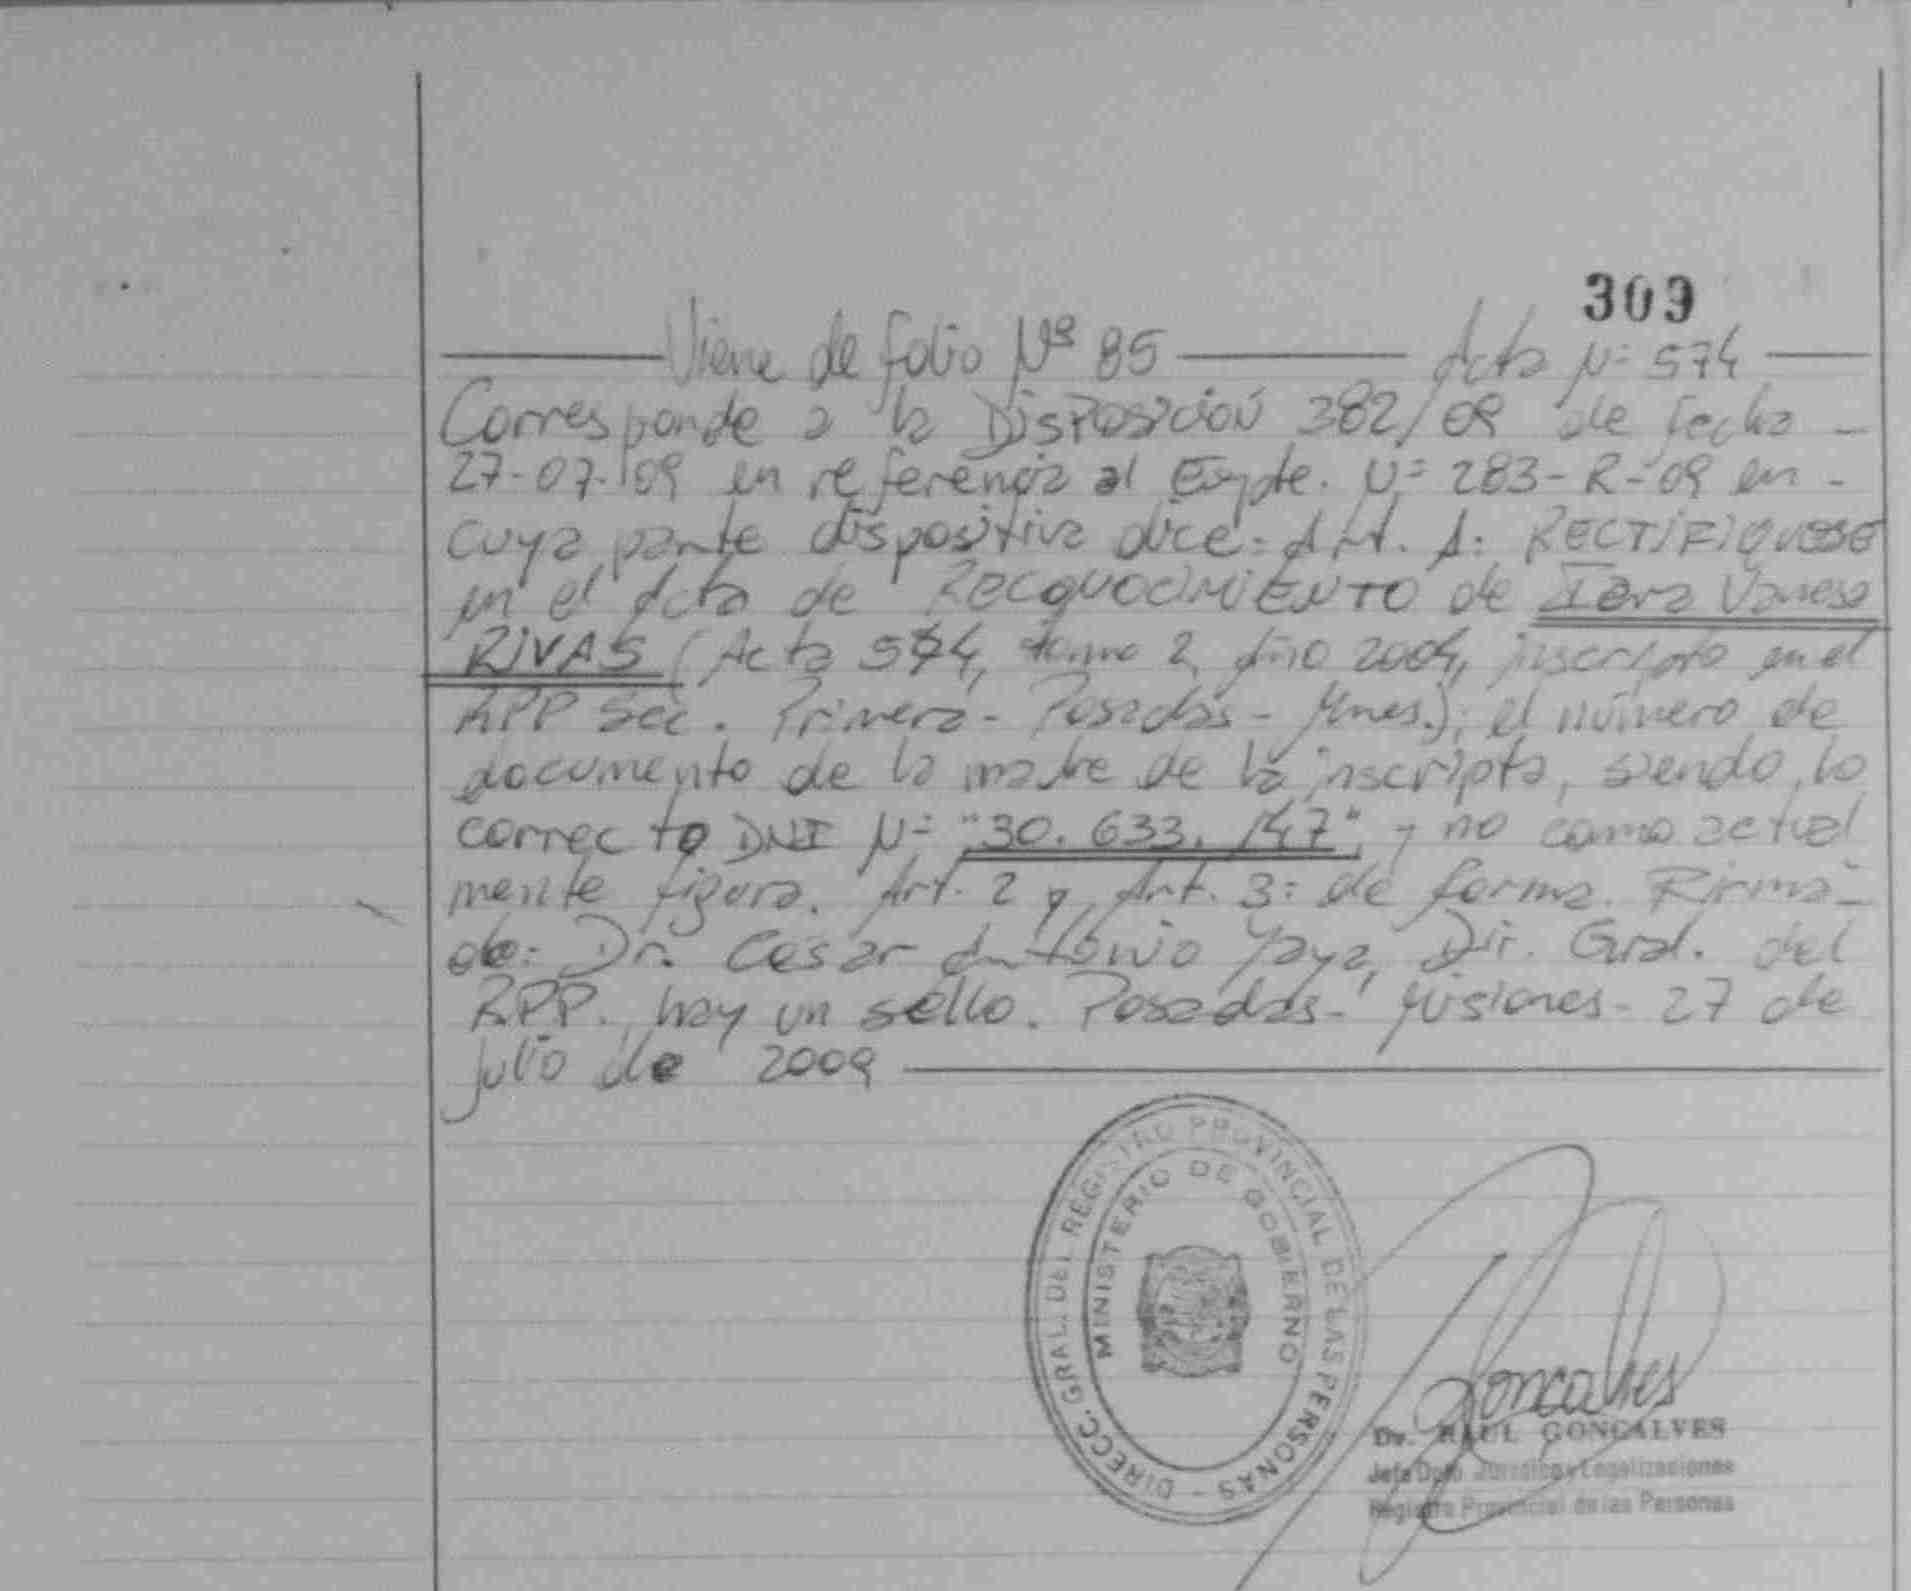 309
Viene de folio Nº 85 Acta Nº 574
Corresponde a la Disposición 382/09 de fecha -
27-07-09 en referencia al Expte. Nº 283-R-09 en -
cuya parte dispositiva dice: Art. 1: RECTIFIQUESE
en el Acta de RECONOCIMIENTO de Iara Vanesa
RIVAS (Acta 574, tomo 2, Año 2004, inscripto en el
RPP Sec. Primera - Posadas - Mnes.); el número de
documento de la madre de la inscripta, siendo lo
correcto DNI Nº "30.633.147" y no como actual
mente figura. Art. 2 y Art. 3: de forma. Firma-
do: Dr. Cesar Antonio Yaya, Dir. Gral. del
RPP. hay un sello. Posadas - Misiones - 27 de
julio de 2009
DIRECC. GRAL. DEL REGISTRO PROVINCIAL DE LAS PERSONAS -
MINISTERIO DE GOBIERNO
Goncalves
Dr. RAUL GONCALVES
Jefe Dpto. Jurídico y Legalizaciones
Registro Provincial de las Personas